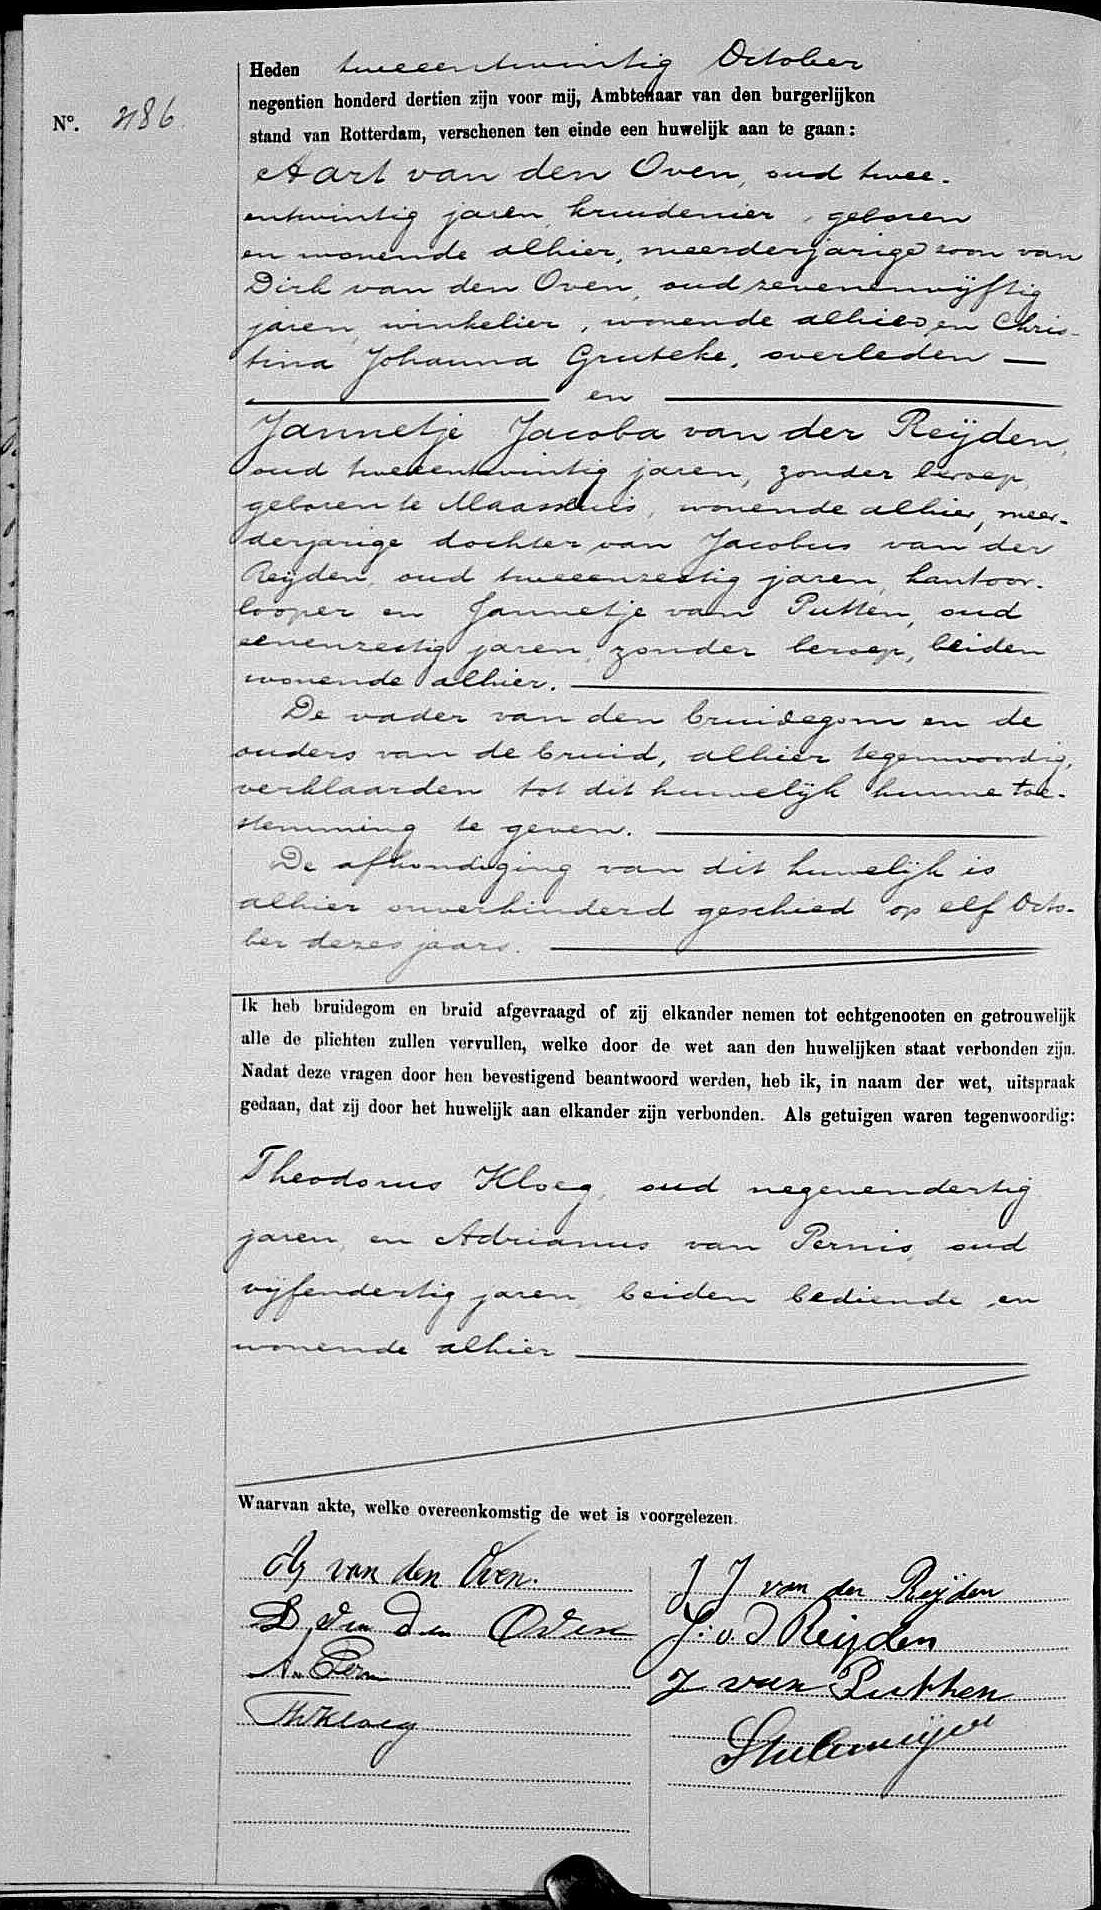 Heden tweeentwintig October
negentien honderd dertien zijn voor mij, Ambtenaar van den burgerlijken
Nº. 486
stand van Rotterdam, verschenen ten einde een huwelijk aan te gaan:
Aart van den Oven, oud twee-
entwintig jaren, kruidenier, geboren
en wonende alhier, meerderjarige zoon van
Dirk van den Oven, oud zevenenvijftig
jaren, winkelier, wonende alhier, en Chris-
tina Johanna Gruteke, overleden —
en
Jannetje Jacoba van der Reijden,
oud tweeentwintig jaren, zonder beroep,
geboren te Maassluis, wonende alhier, meer-
derjarige dochter van Jacobus van der
Reijden, oud tweeenzestig jaren, kantoor-
looper en Jannetje van Putten, oud
eenenzestig jaren, zonder beroep, beiden
wonende alhier.
De vader van den bruidegom en de
ouders van de bruid, alhier tegenwoordig,
verklaarden tot dit huwelijk hunne toe-
stemming te geven.
De afkondiging van dit huwelijk is
alhier onverhinderd geschied op elf Octo-
ber dezes jaars.
Ik heb bruidegom en bruid afgevraagd of zij elkander nemen tot echtgenooten en getrouwelijk
alle de plichten zullen vervullen, welke door de wet aan den huwelijken staat verbonden zijn.
Nadat deze vragen door hen bevestigend beantwoord werden, heb ik, in naam der wet, uitspraak
gedaan, dat zij door het huwelijk aan elkander zijn verbonden. Als getuigen waren tegenwoordig:
Theodorus Kloeg, oud negenendertig
jaren, en Adrianus van Pernis, oud
vijfendertig jaren, beiden bediende, en
wonende alhier
Waarvan akte, welke overeenkomstig de wet is voorgelezen.
van den Oven.
J J van der Reijden
D van den Oven
J. v. d Reijden
J van Putten
Th Kloeg